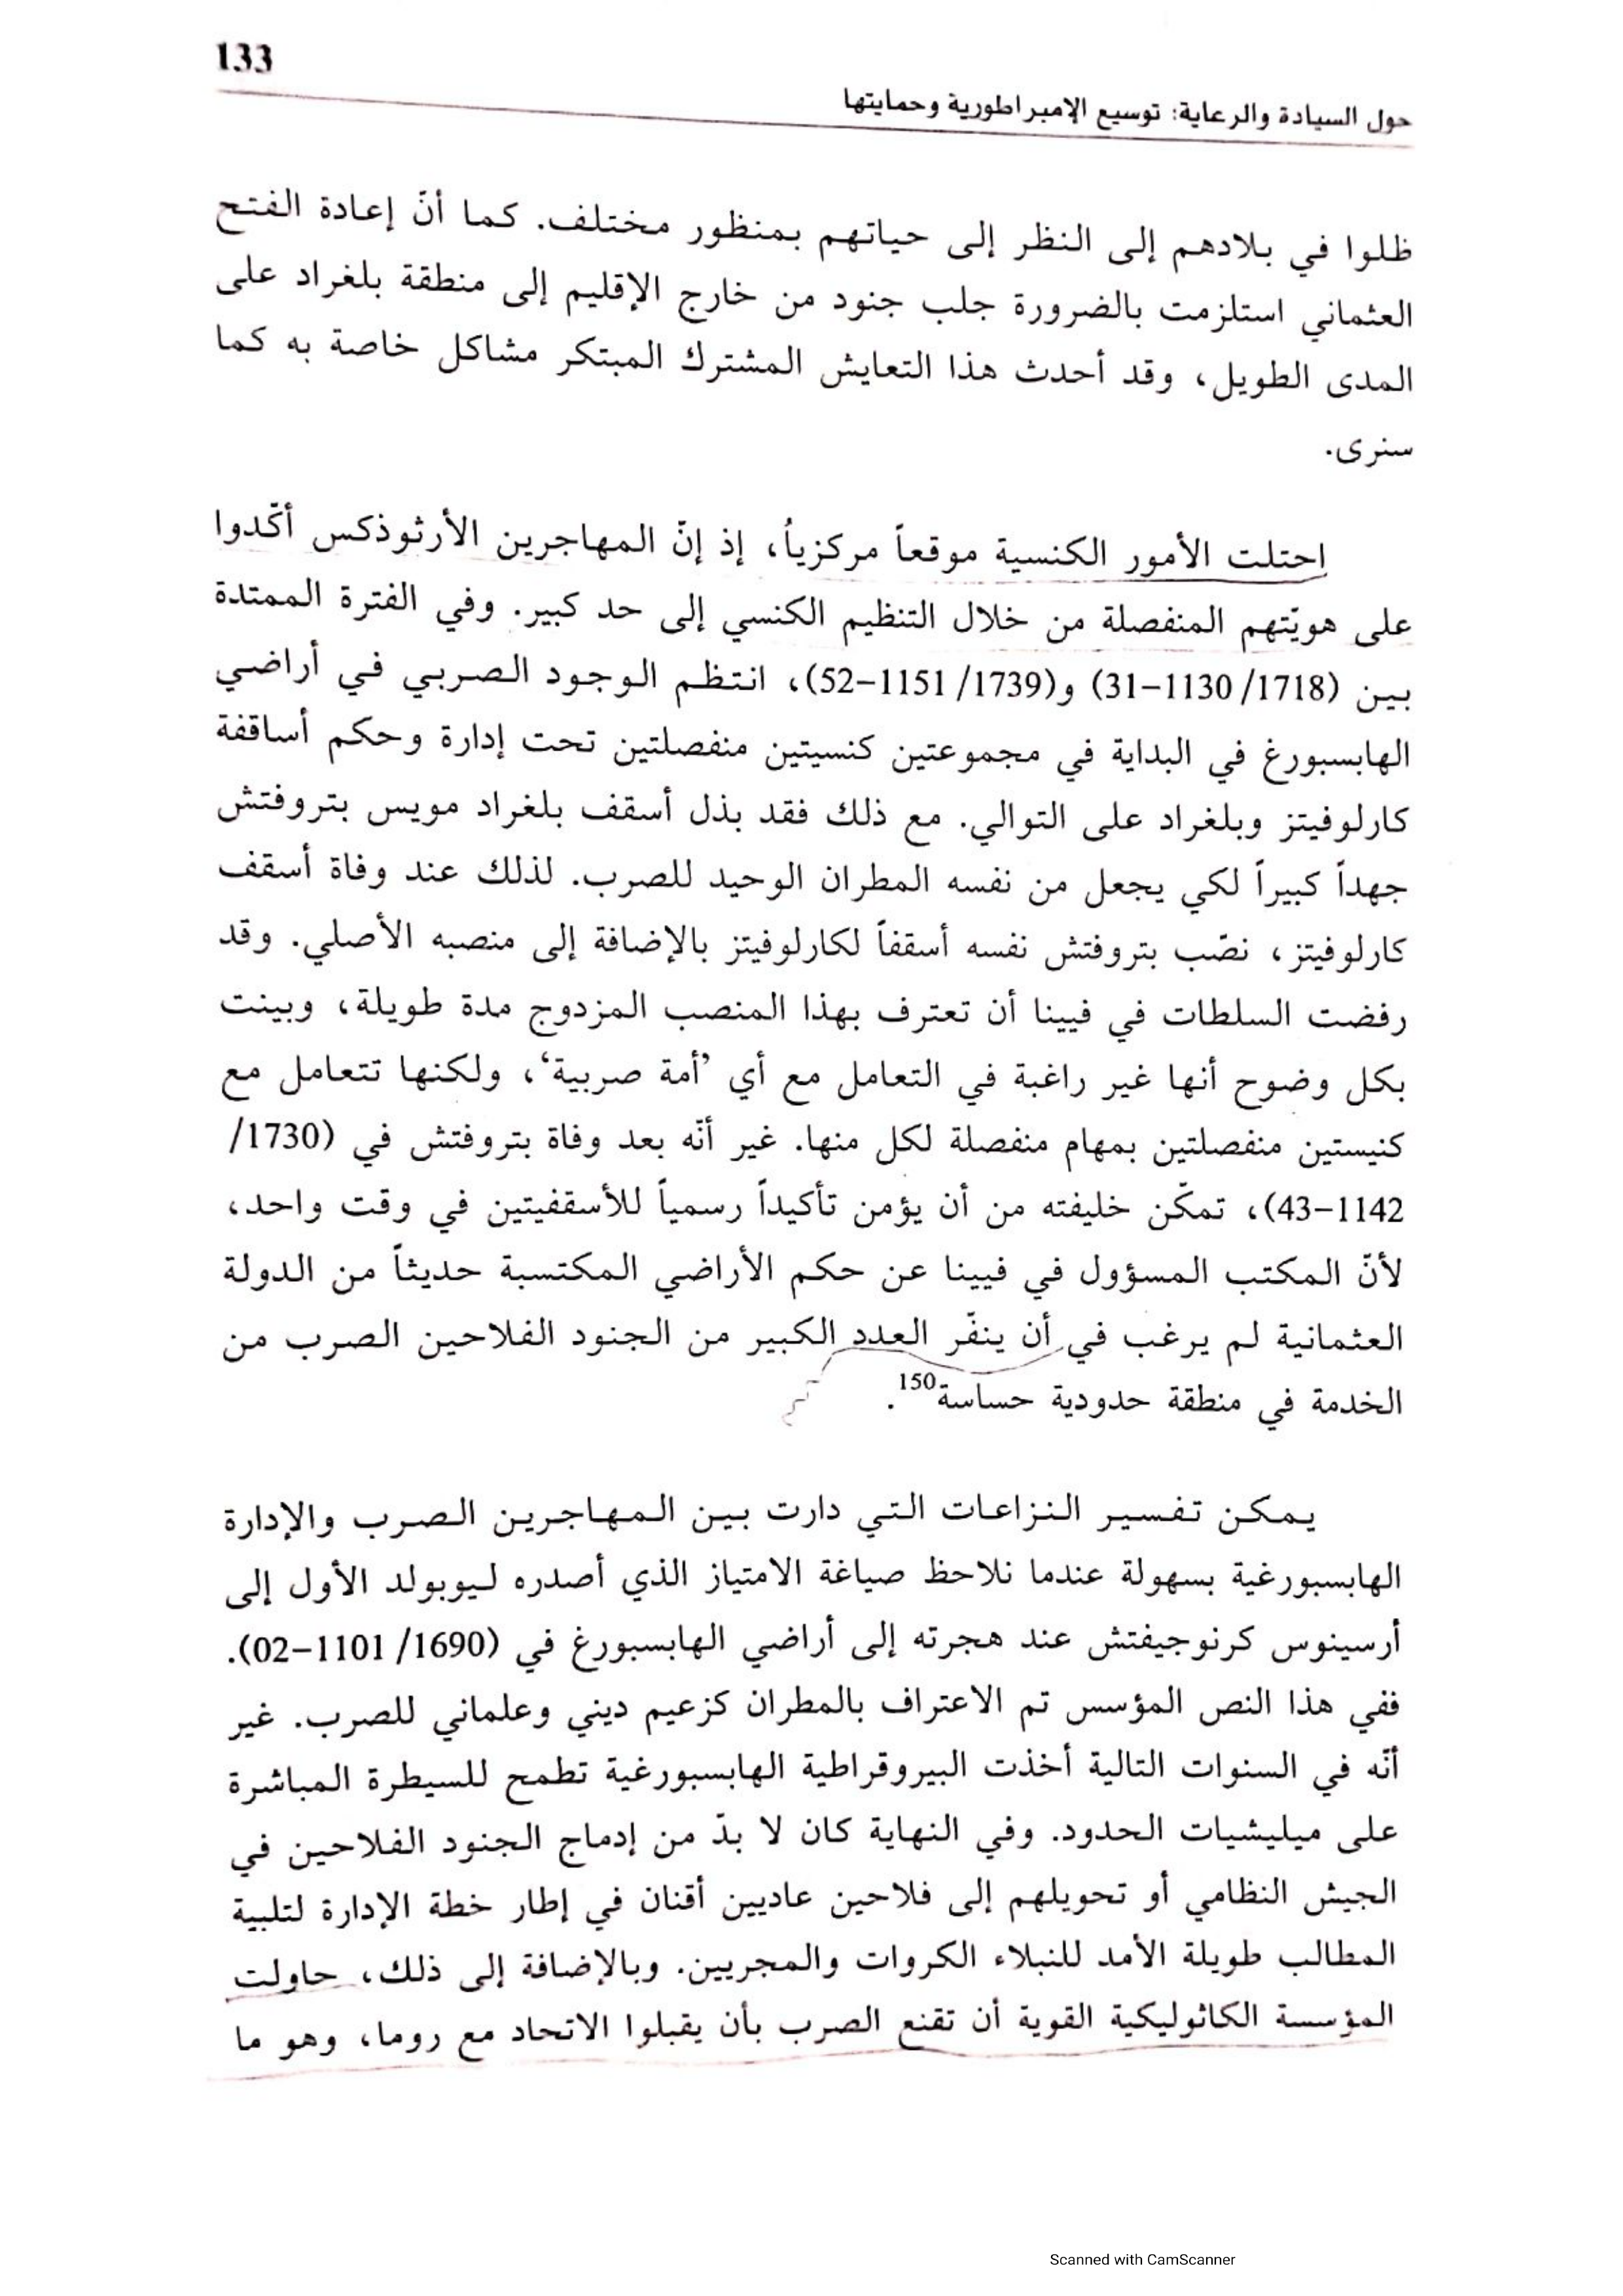 133
حول السيادة والرعاية: توسيع الإمبراطورية وحمايتها
ظلوا في بلادهم إلى النظر إلى حياتهم بمنظور مختلف. كما أنّ إعادة الفتح
العثماني استلزمت بالضرورة جلب جنود من خارج الإقليم إلى منطقة بلغراد على
المدى الطويل، وقد أحدث هذا التعايش المشترك المبتكر مشاكل خاصة به كما
سنرى.
احتلت الأمور الكنسية موقعاً مركزياً، إذ إنّ المهاجرين الأرثوذكس أكّدوا
على هويّتهم المنفصلة من خلال التنظيم الكنسي إلى حد كبير. وفي الفترة الممتدة
بين (1718/ 1130–31) و(1739/ 1151–52)، انتظم الوجود الصربي في أراضي
الهابسبورغ في البداية في مجموعتين كنسيتين منفصلتين تحت إدارة وحكم أساقفة
كارلوفيتز وبلغراد على التوالي. مع ذلك فقد بذل أسقف بلغراد مويس بتروفتش
جهداً كبيراً لكي يجعل من نفسه المطران الوحيد للصرب. لذلك عند وفاة أسقف
كارلوفيتز، نصّب بتروفتش نفسه أسقفاً لكارلوفيتز بالإضافة إلى منصبه الأصلي. وقد
رفضت السلطات في فيينا أن تعترف بهذا المنصب المزدوج مدة طويلة، وبينت
بكل وضوح أنها غير راغبة في التعامل مع أي ’أمة صربية‘، ولكنها تتعامل مع
كنيستين منفصلتين بمهام منفصلة لكل منها. غير أنّه بعد وفاة بتروفتش في (1730/
1142–43)، تمكّن خليفته من أن يؤمن تأكيداً رسمياً للأسقفيتين في وقت واحد،
لأنّ المكتب المسؤول في فيينا عن حكم الأراضي المكتسبة حديثاً من الدولة
العثمانية لم يرغب في أن ينفّر العدد الكبير من الجنود الفلاحين الصرب من
الخدمة في منطقة حدودية حساسة150.
يمكن تفسير النزاعات التي دارت بين المهاجرين الصرب والإدارة
الهابسبورغية بسهولة عندما نلاحظ صياغة الامتياز الذي أصدره ليوبولد الأول إلى
أرسينوس كرنوجيفتش عند هجرته إلى أراضي الهابسبورغ في (1690/ 1101–02).
ففي هذا النص المؤسس تم الاعتراف بالمطران كزعيم ديني وعلماني للصرب. غير
أنّه في السنوات التالية أخذت البيروقراطية الهابسبورغية تطمح للسيطرة المباشرة
على ميليشيات الحدود. وفي النهاية كان لا بدّ من إدماج الجنود الفلاحين في
الجيش النظامي أو تحويلهم إلى فلاحين عاديين أقنان في إطار خطة الإدارة لتلبية
المطالب طويلة الأمد للنبلاء الكروات والمجريين. وبالإضافة إلى ذلك، حاولت
المؤسسة الكاثوليكية القوية أن تقنع الصرب بأن يقبلوا الاتحاد مع روما، وهو ما
Scanned with CamScanner